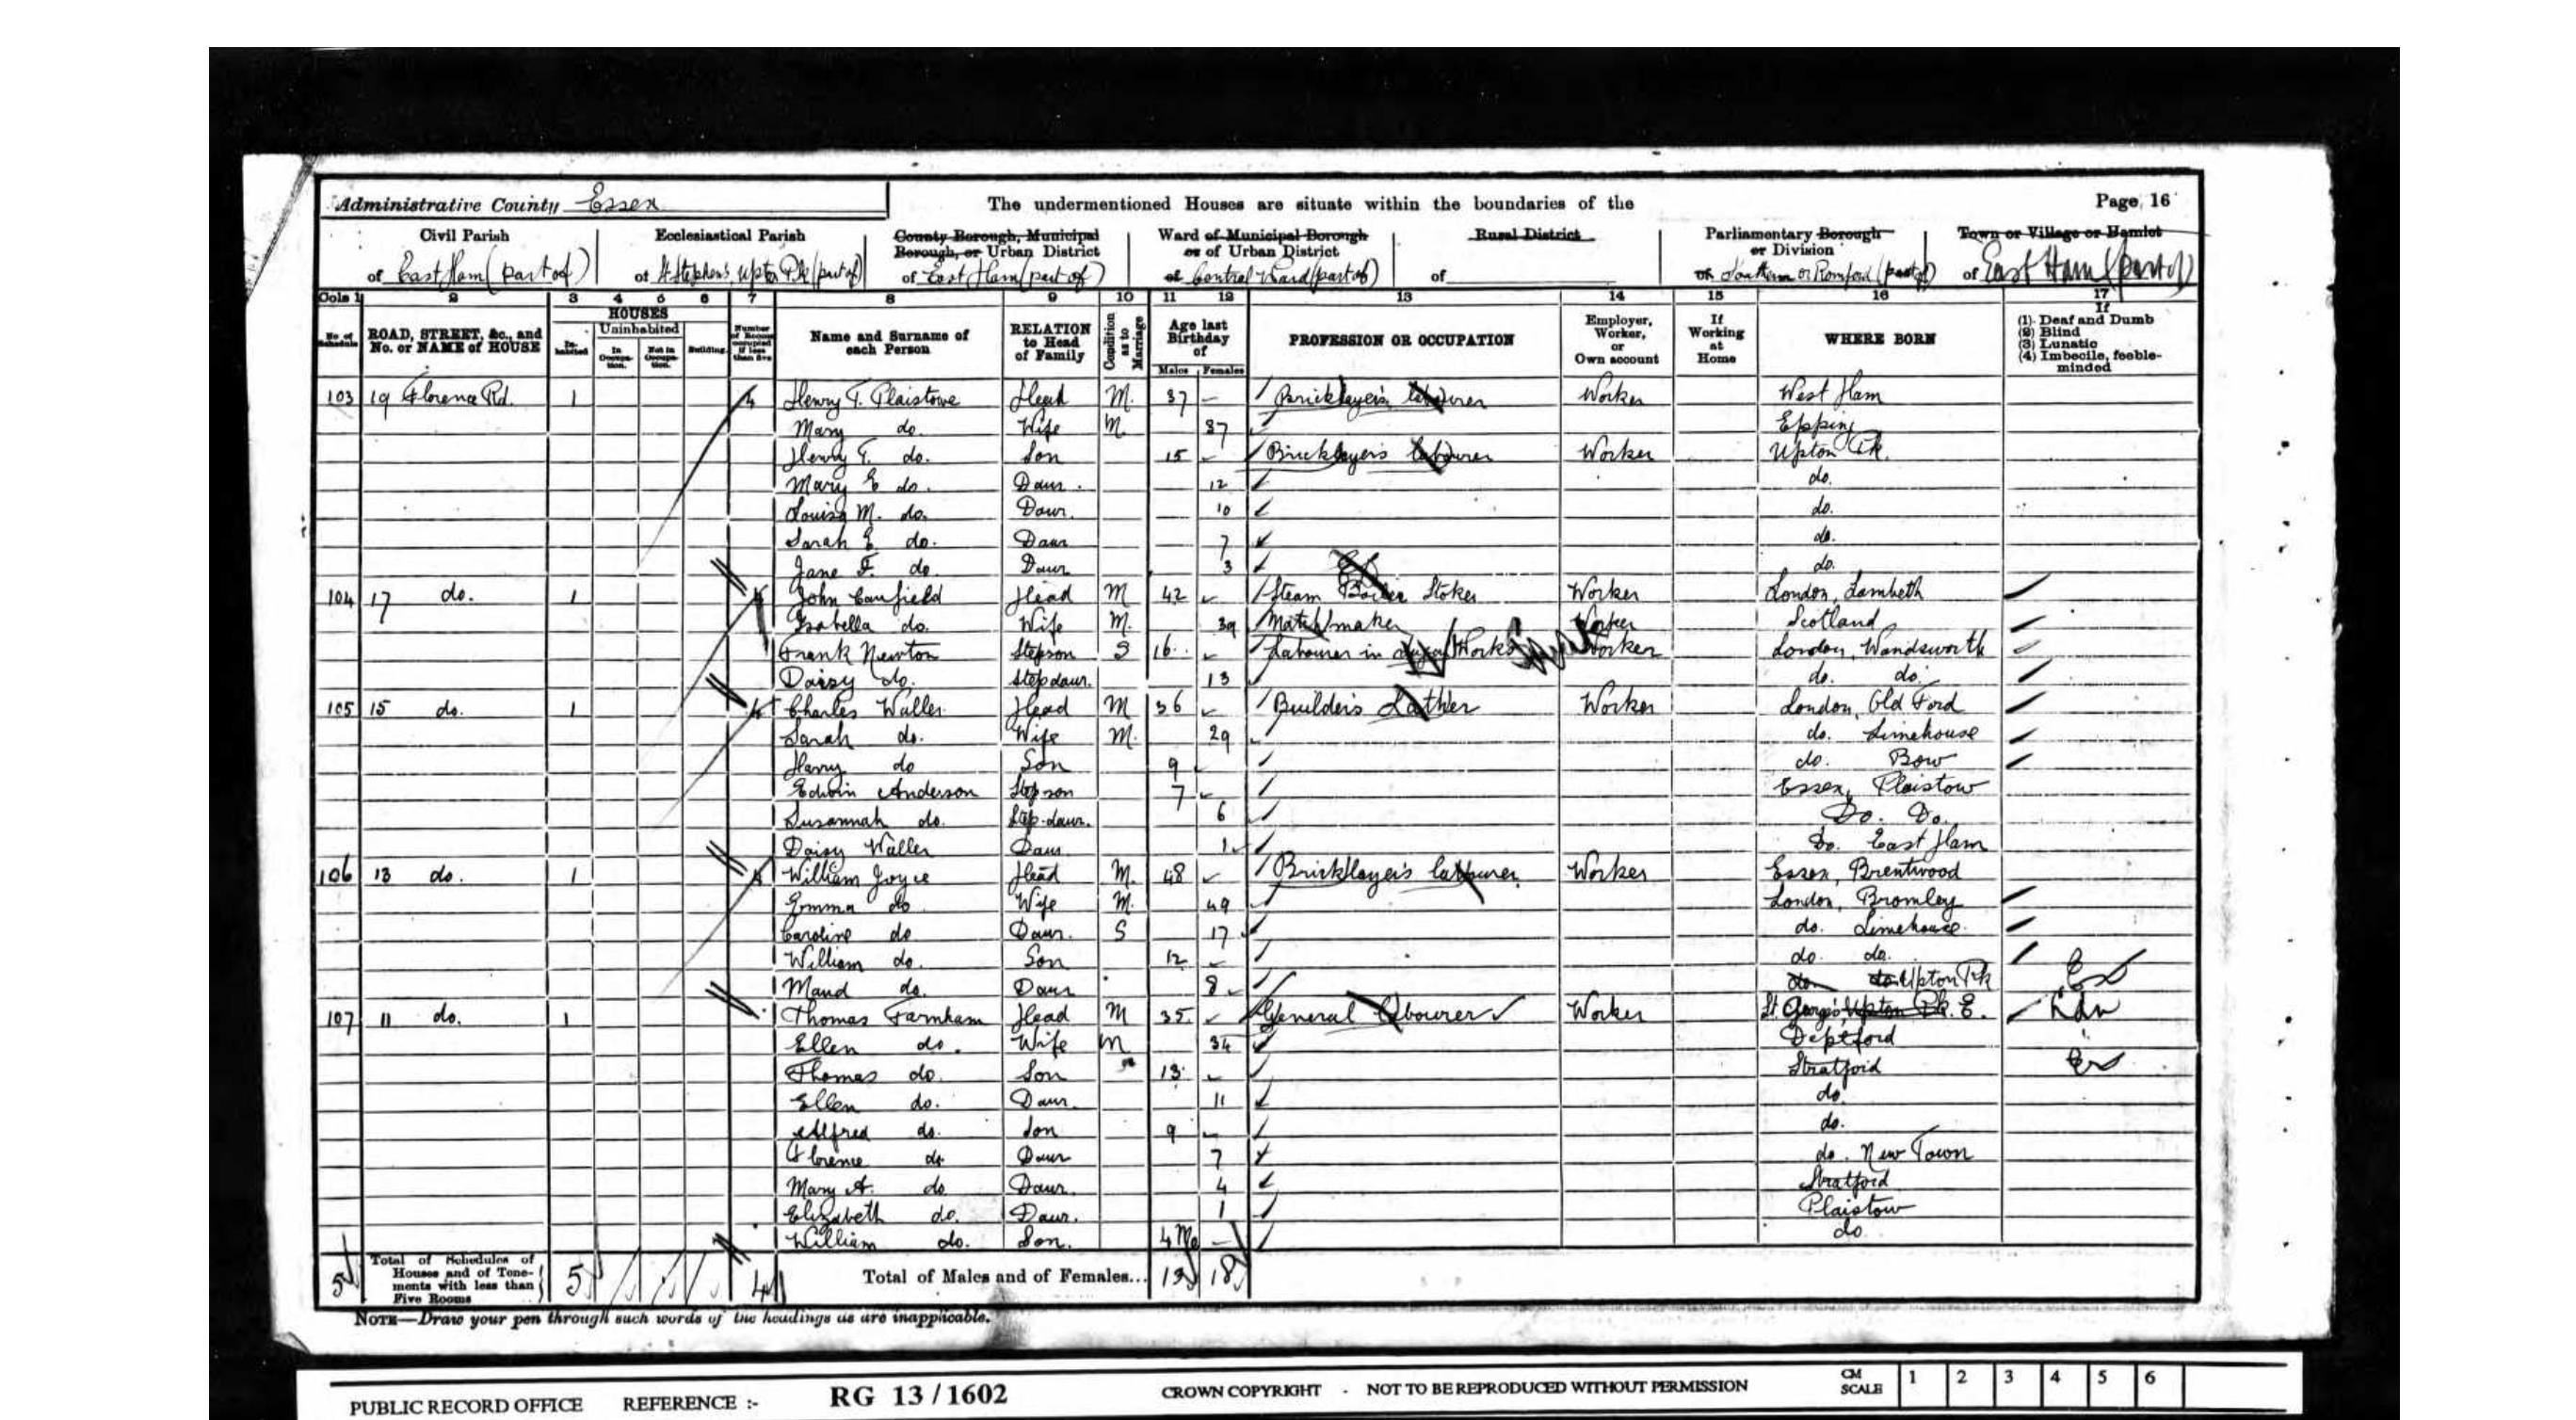 Administrative County Essex
The undermentioned Houses are situate within the boundaries of the
Page 16
Civil Parish
of East Ham (part of)
Ecclesiastical Parish
of St Stephen's, Upton Pk (part of)
County Borough, Municipal Borough, or Urban District
of East Ham (part of)
Ward of Municipal Borough or of Urban District
of Central Ward (part of)
Rural District
of
Parliamentary Borough or Division
of Southern or Romford (part of)
Town or Village or Hamlet
of East Ham (part of)
Cols 1 2 3 4 5 6 7 8 9 10 11 12 13 14 15 16 17
No. of Schedule
ROAD, STREET, &c., and No. or NAME of HOUSE
HOUSES
Inhabited
Uninhabited
In Occupation.
Not in Occupation.
Building.
Number of Rooms occupied if less than five
Name and Surname of each Person
RELATION to Head of Family
Condition as to Marriage
Age last Birthday of
Males Females
PROFESSION OR OCCUPATION
Employer, Worker, or Own account
If Working at Home
WHERE BORN
If
(1) Deaf and Dumb
(2) Blind
(3) Lunatic
(4) Imbecile, feeble-minded
103 19 Florence Rd. 1 4 Henry T. Plaistowe Head M. 37 - Bricklayer's labourer Worker West Ham
Mary do. Wife M 37 Epping
Henry T. do. Son 15 Bricklayer's labourer Worker Upton Pk.
Mary E do. Daur. 12 do.
Louisa M. do. Daur. 10 do.
Sarah E do. Daur 7 do.
Jane F. do Daur 3 do.
104 17 do. 1 4 John Caufield Head M 42 Steam Boiler Stoker Worker London, Lambeth
Isabella do. Wife M. 39 Matchmaker Worker Scotland
Frank Newton Stepson S 16 Labourer in Works Worker London, Wandsworth
Daisy do. Stepdaur. 13 do. do.
105 15 do. 1 4 Charles Waller Head M 36 Builder's Lather Worker London, Old Ford
Sarah do. Wife M. 29 do. Limehouse
Harry do Son 9 do. Bow
Edwin Anderson Stepson 7 Essex, Plaistow
Susannah do. Step-daur. 6 Do. Do.
Daisy Waller Daur 1 Do. East Ham
106 13 do. 1 4 William Joyce Head M. 48 Bricklayer's labourer Worker Essex, Brentwood
Emma do Wife M. 49 London, Bromley
Caroline do Daur. S 17 do. Limehouse
William do. Son 12 do. do.
Maud do. Daur 8 do do Upton Pk
107 11 do. 1 Thomas Farnham Head M 35 General Labourer Worker St. George's Upton Pk. E. Ldn
Ellen do. Wife M 34 Deptford
Thomas do. Son 13 Stratford
Ellen do. Daur. 11 do
Alfred do. Son 9 do.
Florence do Daur 7 do. New Town
Mary A. do Daur. 4 Stratford
Elizabeth do. Daur. 1 Plaistow
William do. Son. 4 Mo - do
5 Total of Schedules of Houses and of Tenements with less than Five Rooms 5 4 Total of Males and of Females... 13 18
NOTE—Draw your pen through such words of the headings as are inapplicable.
PUBLIC RECORD OFFICE REFERENCE :- RG 13 / 1602 CROWN COPYRIGHT - NOT TO BE REPRODUCED WITHOUT PERMISSION CM SCALE 1 2 3 4 5 6